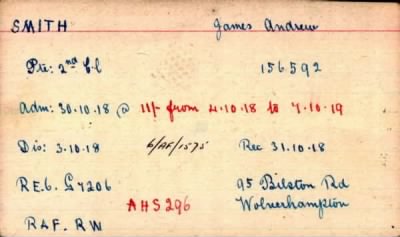 SMITH James Andrew
Pte: 2nd Cl 156592
Adm: 30.10.18 @ 11/- from 4.10.18 to 7.10.19
Dis: 3.10.18 6/AF/1575 Rec 31.10.18
RE6. G7206 95 Bilston Rd
AHS296 Wolverhampton
RAF. RW